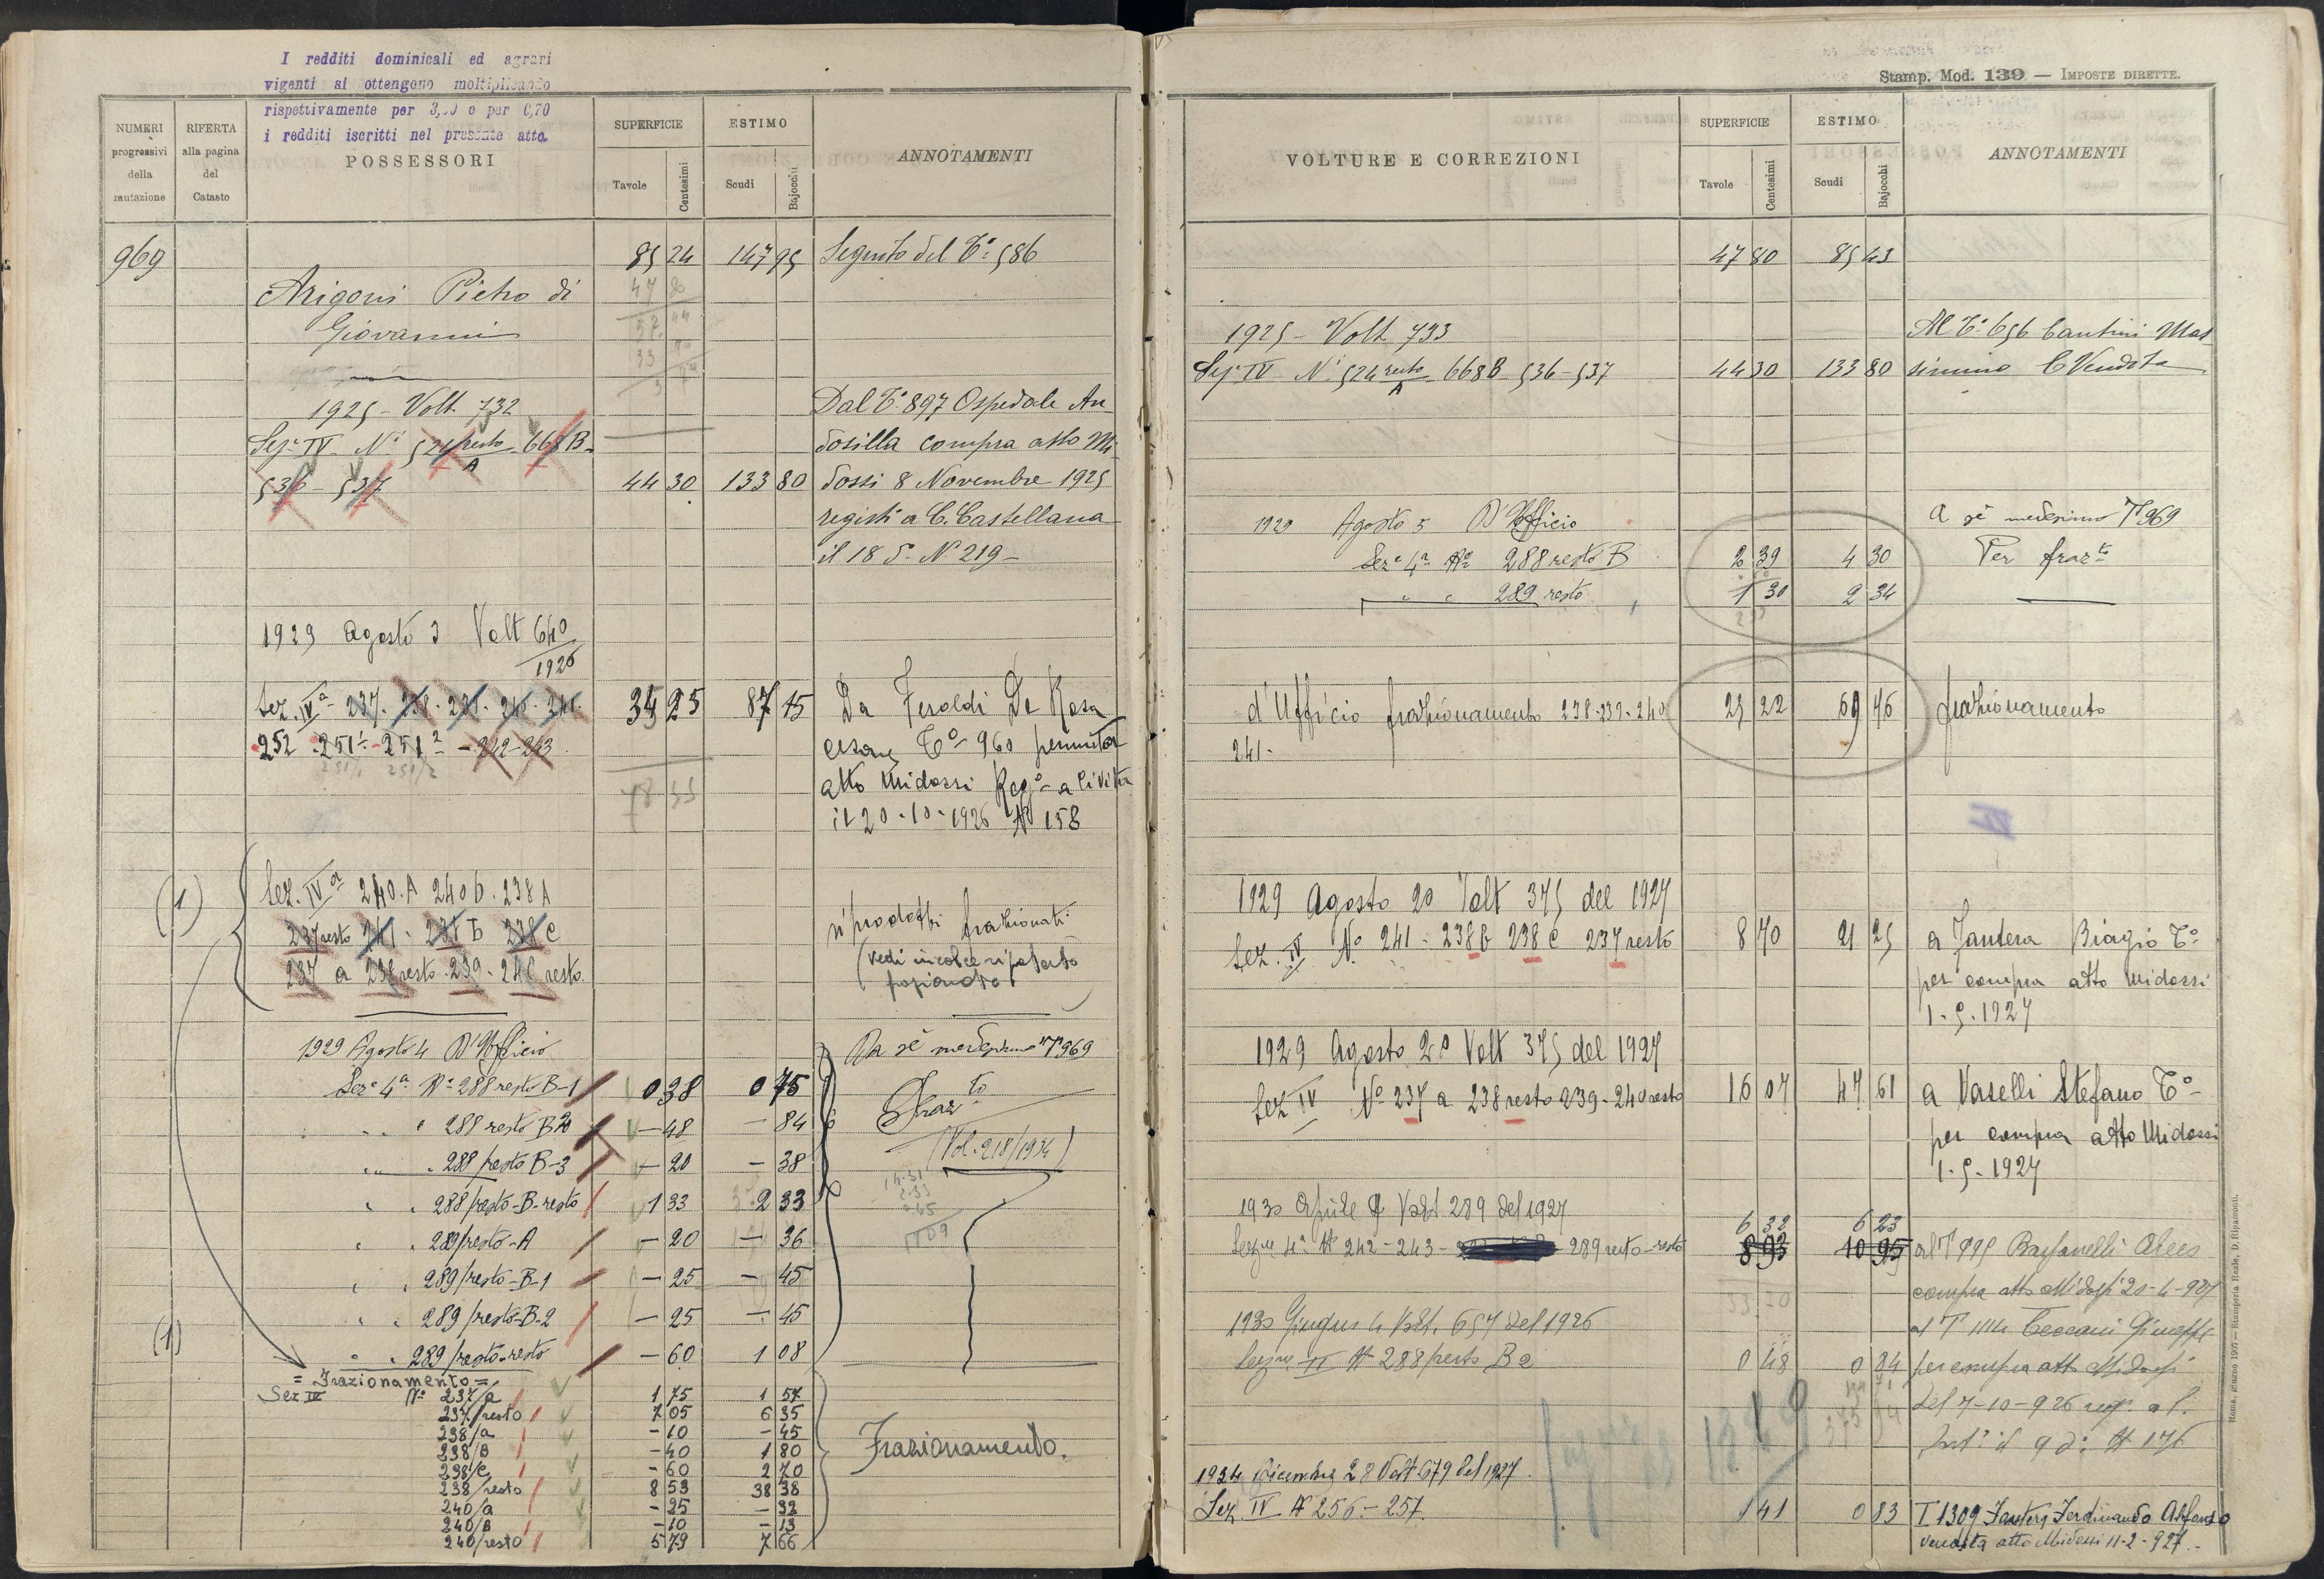 I redditi dominicali ed agrari
vigenti si ottengono moltiplicando
rispettivamente per 3,50 e per 0,70
i redditi iscritti nel presente atto.
NUMERI progressivi della mutazione
RIFERTA alla pagina del Catasto
POSSESSORI
SUPERFICIE
Tavole Centesimi
ESTIMO
Scudi Bajocchi
ANNOTAMENTI
969 85 24 147 95 Seguito del T.º 586
Arigoni Pietro di
Giovanni
1925 - Volt. 732
Dal T.º 897 Ospedale An
Sez. IV - Nⁱ 524 resto/A 668 B -
dosilla compra atto Mi
536 - 537 44 30 133 80 dossi 8 Novembre 1925
registº a C. Castellana
il 18 d. Nº 219 -
1929 Agosto 3 Volt 640/1926
Sez. IVª 237. 238. 239. 240. 241. 34 25 87 15 Da Feroldi De Rosa
252 - 251¹ - 251² - 242 - 243
Cesare Tº 960 permuta
78 55
atto Midossi Regº a Civita
il 20-10-1926 Nº 158
(1) Sez. IVª 240.A 240 b. 238 A
237 resto 241 - 238 B 238 C
riprodotti frazionati
237 a 238 resto. 239. 240 resto.
1929 Agosto 4 D'Ufficio
Da sè medesimo Tº 969
Sezᵉ 4ª Nº 288 resto B-1 0 38 0 75
Frazᵗᵒ
" " 288 resto B2 — 48 — 84
(Vol. 218/1934)
" " 288/resto B-3 — 20 — 38
" " 288/resto-B-resto 1 33 2 33
" " 289/resto-A — 20 — 36
" " 289/resto-B-1 — 25 — 45
" " 289/resto-B-2 — 25 — 45
(1) " " 289/resto-resto — 60 1 08
= Frazionamento =
Sez IV Nº 237/a 1 75 1 57
237/resto 7 05 6 35
238/a — 10 — 45
238/B — 40 1 80
238/c — 60 2 70
Frazionamento.
238/resto 8 53 38 38
240/a — 25 — 32
240/B — 10 — 13
240/resto 5 79 7 66
Stamp. Mod. 139 — IMPOSTE DIRETTE.
VOLTURE E CORREZIONI
SUPERFICIE
Tavole Centesimi
ESTIMO
Scudi Bajocchi
ANNOTAMENTI
47 80 85 43
1925 - Volt. 733
Al T.º 656 Cantini Mas
Sez. IV Nⁱ 524 resto/A 668 B 536-537 44 30 133 80 simino C Vendita
1929 Agosto 5 D'Ufficio
A sè medesimo Tº 969
Sezᵉ 4ª Nº 288 resto B 2 39 4 30 Per frazᵗᵒ
" " 289 resto 1 30 2 34
d'Ufficio frazionamento 238-239-240 25 22 69 46 frazionamento
241-
1929 Agosto 20 Volt 375 del 1927
Sez. IV Nº 241 - 238 b 238 c 237 resto 8 70 21 25 a Jantera Biagio Tº
per compra atto Midossi
1-9-1927
1929 Agosto 20 Volt 375 del 1927
Sez IV Nº 237 a 238 resto 239-240 resto 16 07 47 61 a Vaselli Stefano Tº
per compra atto Midossi
1-9-1927
1930 Aprile Volt 289 del 1927
6 32 6 23
Sezⁿᵉ 4ª Nº 242-243- 289 resto-resto 8 93 10 95
compra atto Midossi 20-4-927
1930 Giugno 4 Volt. 657 del 1926
Sezⁿᵉ IV Nº 288/resto B2 0 48 0 84 per compra atto Midossi
del 7-10-926 regº a C.
Castª il 9 dº Nº 176
1934 Dicembre 28 Volt 679 del 1927.
Sez. IV Nº 256 - 257. 1 41 0 83 T 1309 Jantera Ferdinando Alfonso
vendita atto Midossi 11-2-927.-
Roma, 1907 — Stamperia Reale, D. Ripamonti.